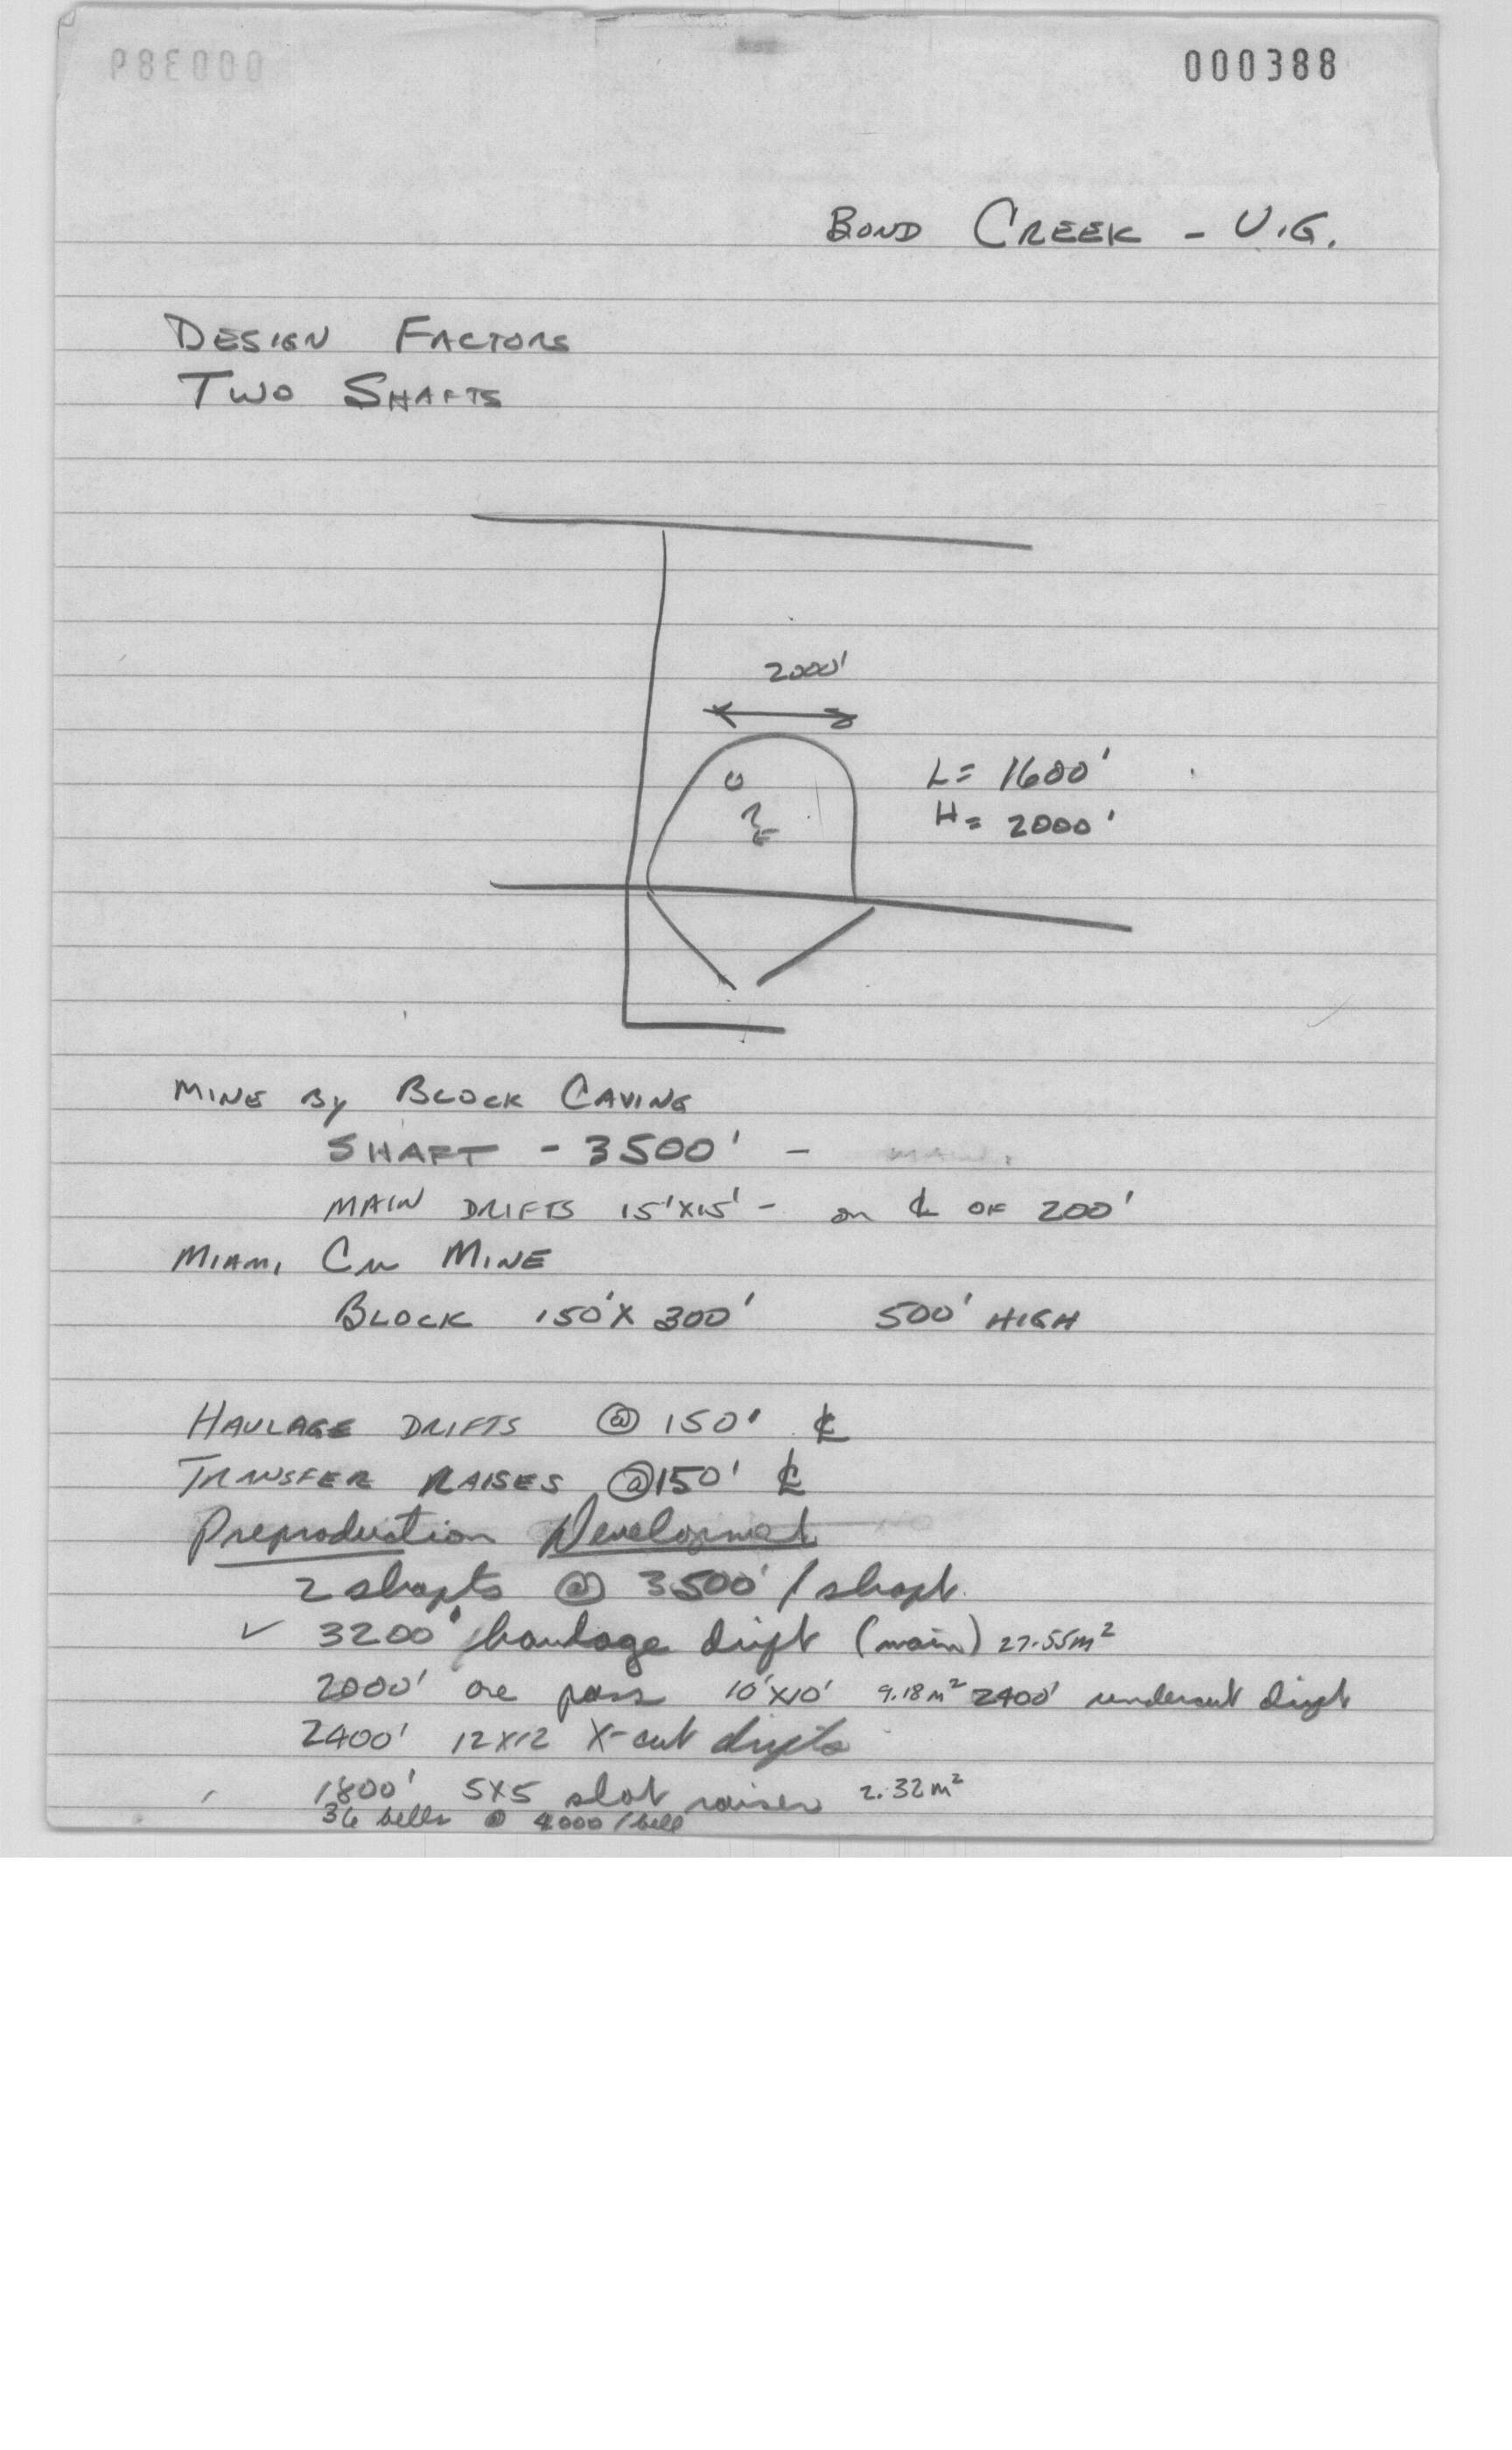 000388
BOND CREEK - U.G.
DESIGN FACTORS
TWO SHAFTS
2000'
L= 1600'
H= 2000'
MINE By BLOCK CAVING
SHAFT - 3500' -
MAIN DRIFTS 15'X15' - on ℄ OF 200'
MIAMI Cu MINE
BLOCK 150'X 300' 500' HIGH
HAULAGE DRIFTS @ 150' ℄
TRANSFER RAISES @150' ℄
Preproduction Development
2 shafts @ 3500' / shaft.
✓ 3200' haulage drift (main) 27.55m²
2000' ore pass 10'X10' 9.18m² 2400' undercut drift
2400' 12X12 X-cut drifts
1800' 5X5 slot raises 2.32m²
36 bells @ 4000 / bell